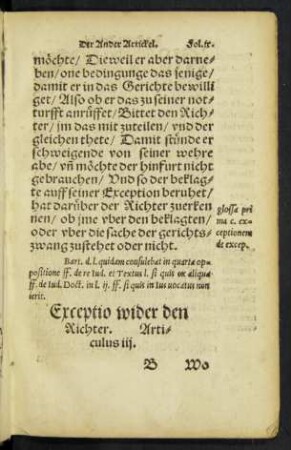 Der Ander Artickel. Fol. ix.
möchte/ Dieweil er aber darne-
ben/ one bedingunge das jenige/
damit er in das Gerichte bewilli
get/ Also ob er das zu seiner not-
turfft anrüffet/ Bittet den Rich-
ter/ jm das mit zuteilen/ vnd der
gleichen thete/ Damit stünde er
schweigende von seiner wehre
abe/ vñ möchte der hinfurt nicht
gebrauchen/ Vnd so der beklag-
te auff seiner Exception beruhet/
hat darüber der Richter zuerken
nen/ ob jme vber den beklagten/
oder vber die sache der gerichts-
zwang zustehet oder nicht.
glossa pri
ma c. ex-
ceptionem
de excep.
Bart. d. l. quidam consulebat in quarta op-
positione ff. de re Iud. et Textus l. si quis ex aliqua
ff. de Iud. Doct. in l. ij. ff. si quis in Ius uocatus non
ierit.
Exceptio wider den
Richter. Arti-
culus iij.
B Wo